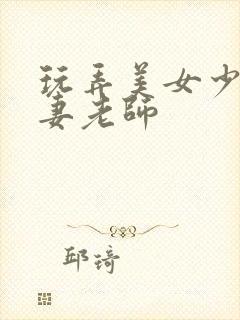 玩弄美女少
妻老师
邱琦